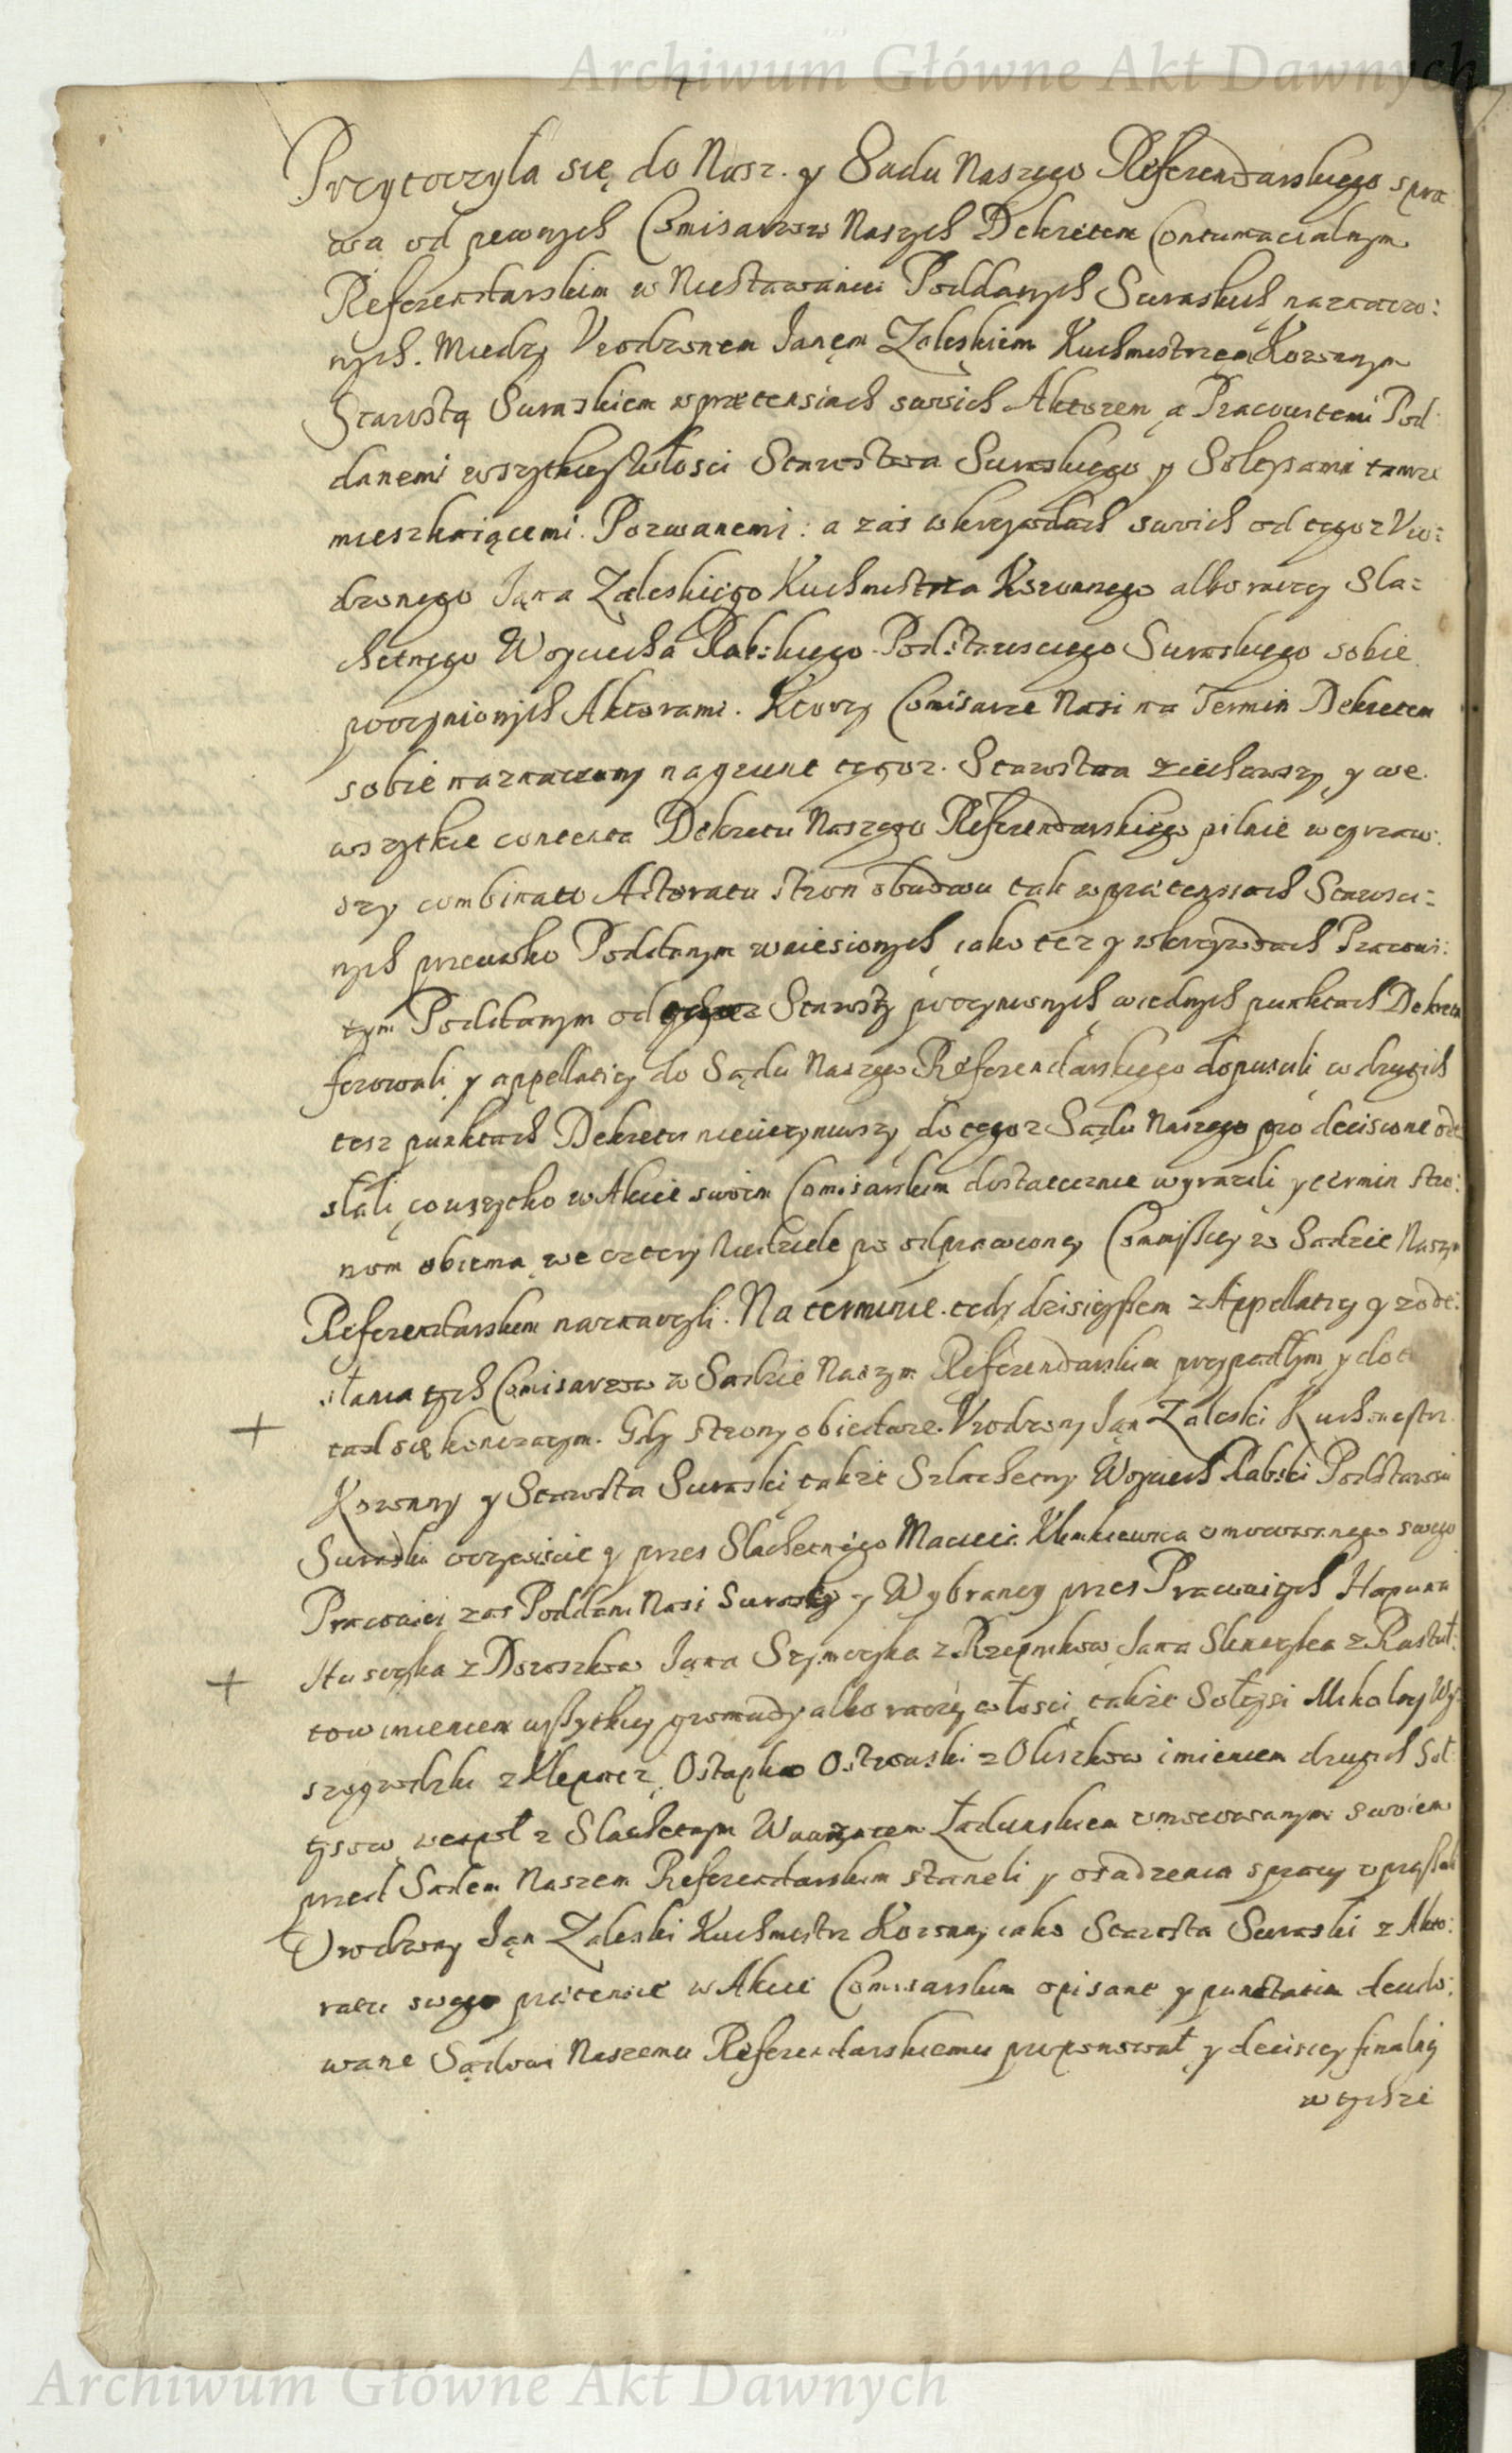 Archiwum Główne Akt Dawnych
Przytoczyła się do Nasz. y Sadu Naszego Referendarskiego spra
wa od pewnych Comisarzow Naszych Dekretem Contumacialnym
Referendarskim w Niestawaniu Poddanych Suraskich naznaczo:
nych. Miedzy Vrodzonem Janęm Zaleskiem Kuchmistrzęm Koronnym
Starostą Suraskiem w prætensiach swoich Aktorem, a Pracowitemi Pod
danemi wszytkiey włosci Starostwa Suraskiego y Soltysami tamże
mieszkaiącemi Pozwanemi: a zaś w krzywdach swoich od tegoż Vro:
dzonego Jana Zaleskiego Kuchmistrza Koronnego albo raczey Sla:
chetnego Woyciecha Rabskiego Podstarosciego Suraskiego sobie
poczynionych Aktorami. Ktorzy Comisarze Nasi na Termin Dekretem
sobie naznaczony na grunt tegoz. Starostwa ziechawszy, y we
wszytkie contenta Dekretu Naszego Referendarskiego pilnie weyrzaw:
szy combinato Actoratu stron obudwu tak w prætensiach Starosci:
nych przeciwko Poddanym wniesionych, iako tez y w krzywdach Pracowi:
tym Poddanym od Starosty poczynionych, w iednych punktach Dekreta
ferowali, y appellatiey do Sądu Naszego Referendarskiego dopuscili, w drugich
tesz punktach Dekretu nieuczyniwszy, do tegoz Sądu Naszego pro decisione ode
słali, co wszytko w Akcie swoim Comisarskim dostatecznie wyrazili y termin stro:
nom obiema, we cztery Niedziele po odprawioney Commissiey w Sadzie Naszym
Referendarskim naznaczyli. Na terminie tedy dzisieyszem z Appellatiey y z ode:
słania tych Comisarzow w Sadzie Naszym Referendarskim przypadłym, y do
tad się konczacym. Gdy strony obiedwie. Vrodzony Jąn Zaleski Kuchmistrz
Koronny y Starosta Suraski, także Szlachetny Woyciech Rabski Podstarosci
Suraski oczywiscie y przes Slachetnego Macieia Klimkiewicza vmocowanego swego
Pracowici zas Poddani Nasi Surascy y Wybrancy przes Pracowitych Hapuna
z Doroszkow Jana Szymczyka z Rzepnikow, Jana z Rastoł:
tow imieniem wszytkiey gromady albo raczey włosci, także Sołtysi Mikołay Wy:
z Klepacz, Ostapko z Oliszkow imieniem drugich Soł
tysow, wespoł z Slachetnym Wawrzyncem vmocowanym swoiem
przed Sadem Naszem Referendarskim staneli y osadzenia sprawy
Vrodzony Jąn Zaleski Kuchmistrz Koronny, iako Starosta Suraski z Akto:
ratu swego prætensie w Akcie Comisarskim opisane y punctatim deudo:
wane Sądowi Naszemu Referendarskiemu proponował, y decisiey finalney
w tychze
Archiwum Główne Akt Dawnych